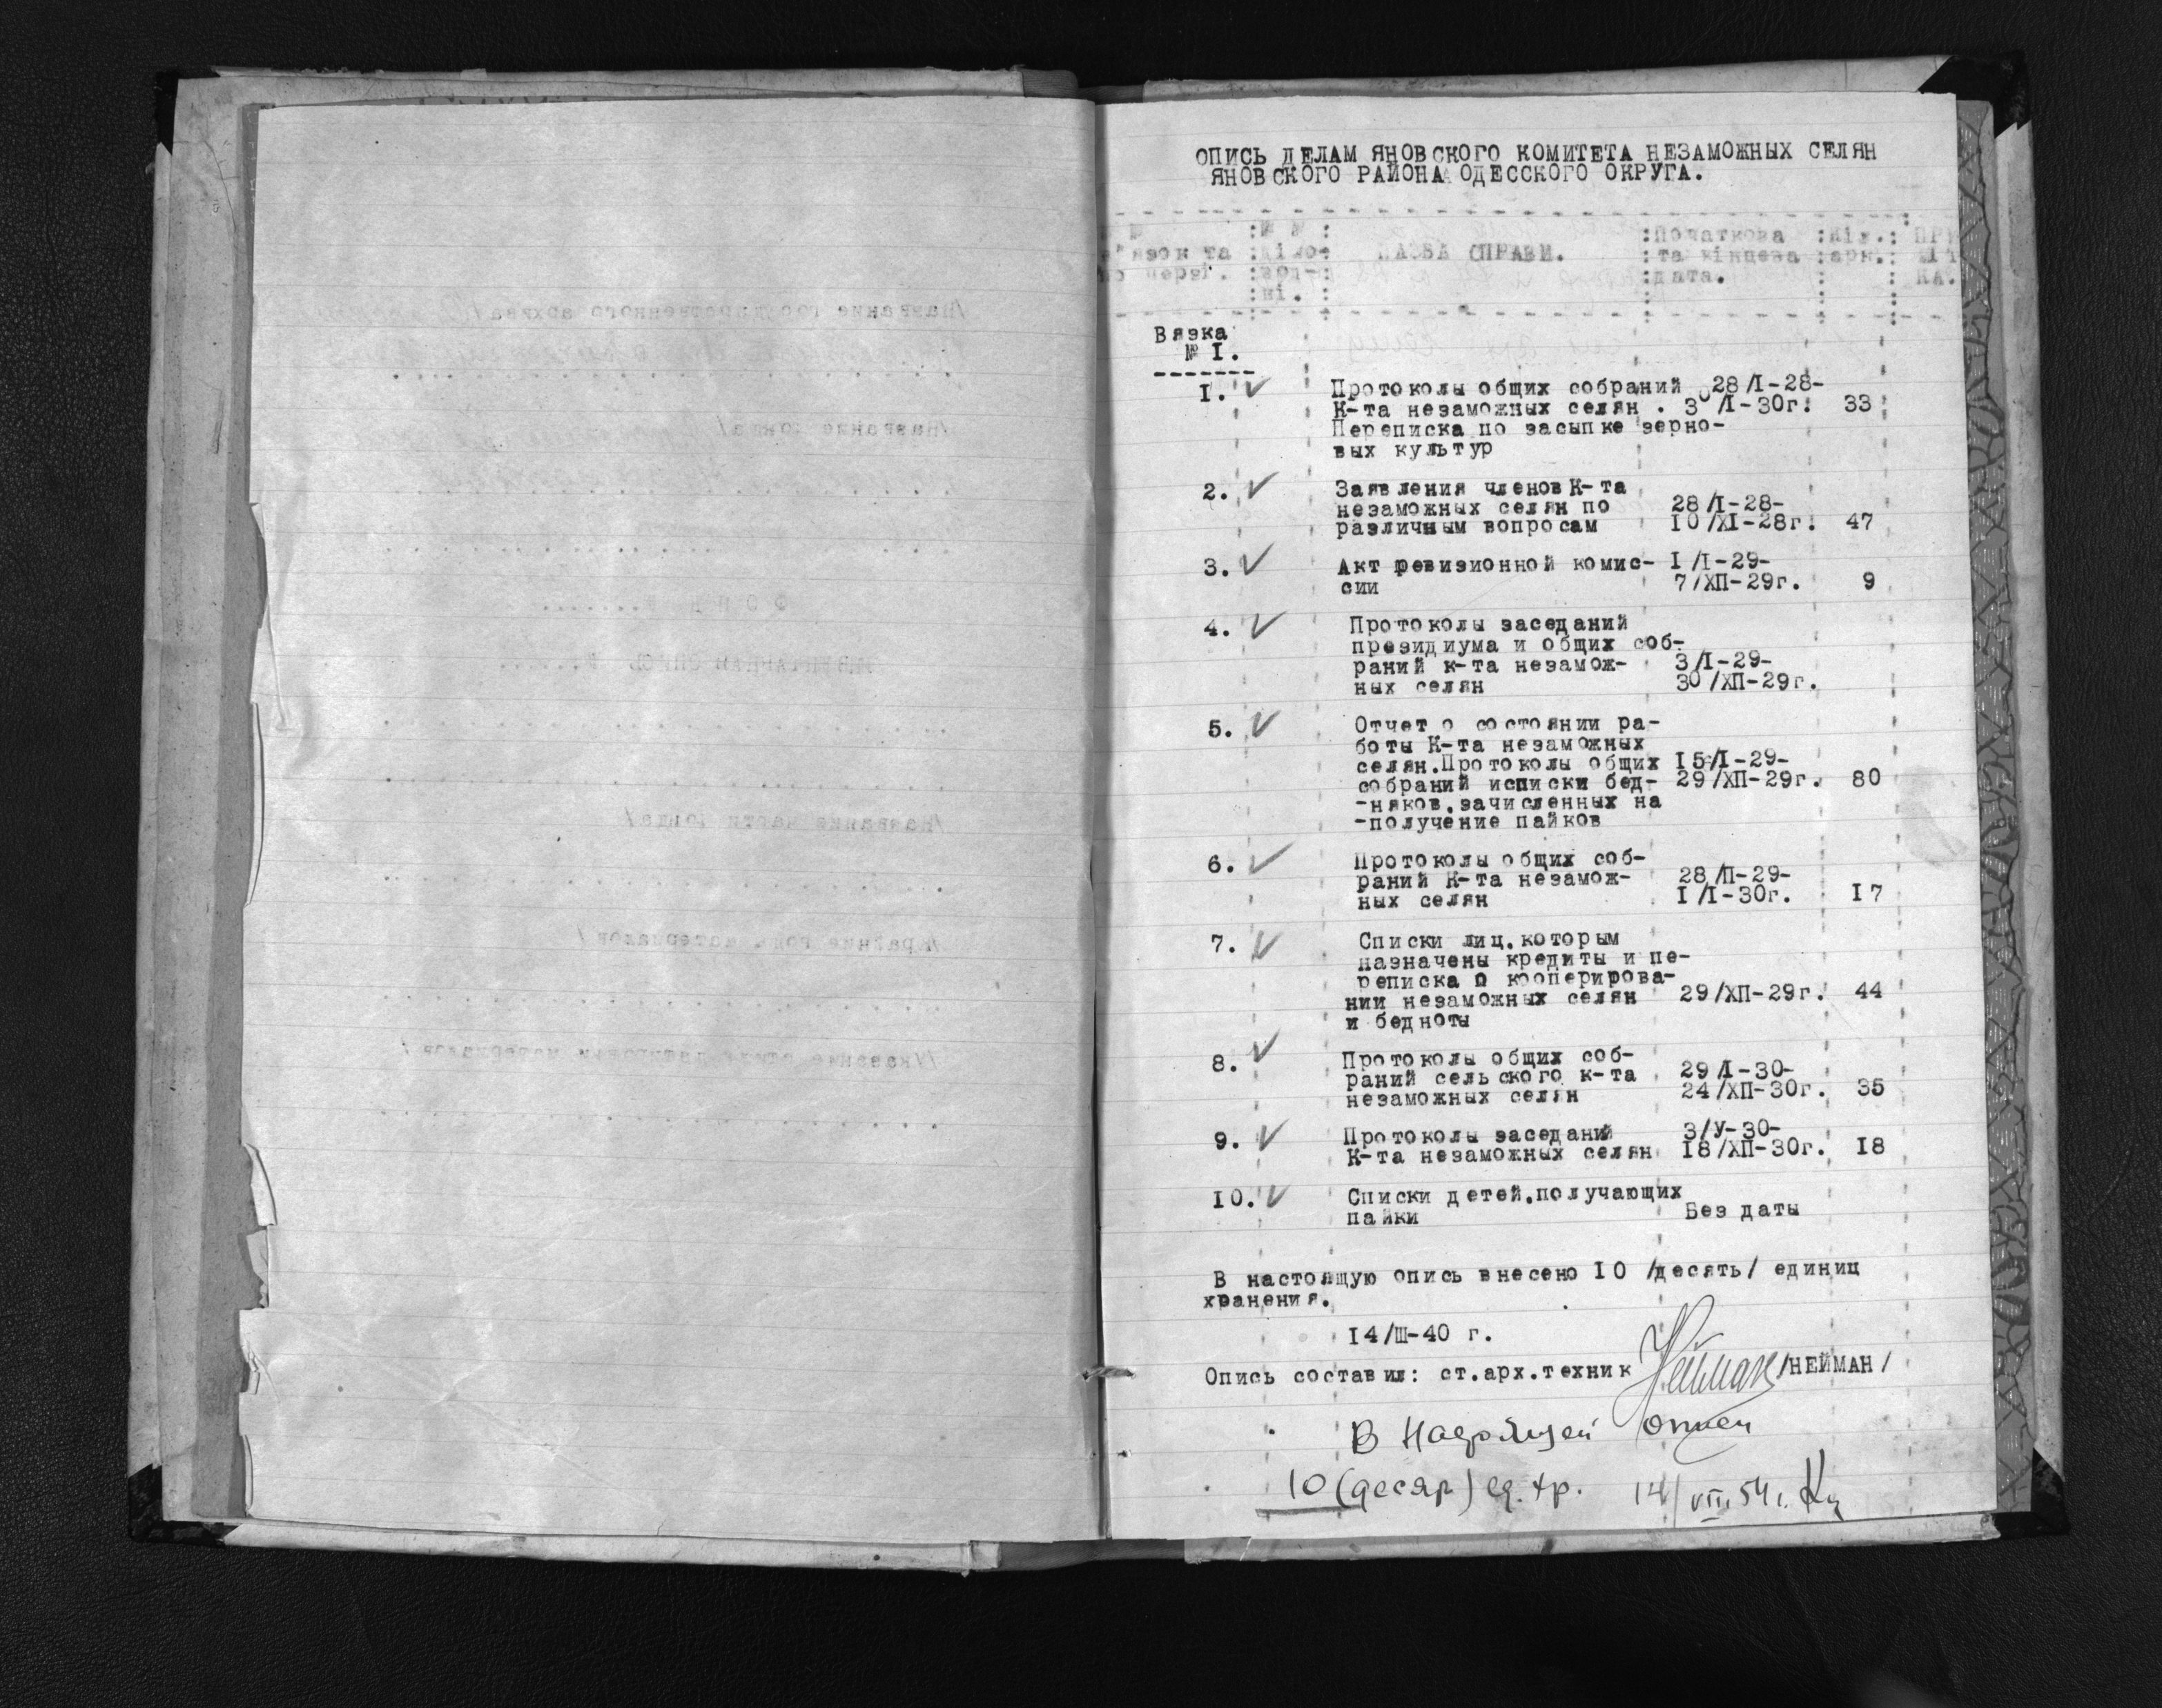 ОПИСЬ ДЕЛАМ ЯНОВСКОГО КОМИТЕТА НЕЗАМОЖНЫХ СЕЛЯН
ЯНОВСКОГО РАЙОНА ОДЕССКОГО ОКРУГА.
НАЗВА СПРАВИ.
Початкова
та кінцева
дата.
Вязка
№ I.
I. Протоколы общих собраний 28/I-28-
К-та незаможных селян . 30/I-30г. 33
Переписка по засыпке зерно-
вых культур
2. Заявления членов К-та
незаможных селян по 28/I-28-
различным вопросам IO/XI-28г. 47
3. Акт ревизионной комис- I/I-29-
сии 7/ХП-29г. 9
4. Протоколы заседаний
президиума и общих соб-
раний к-та незамож- 3/I-29-
ных селян 30/ХП-29г.
5. Отчет о состоянии ра-
боты К-та незаможных
селян.Протоколы общих I5/I-29-
собраний исписки бед- 29/ХП-29г. 80
-няков.зачисленных на
-получение пайков
6. Протоколы общих соб-
раний К-та незамож- 28/П-29-
ных селян I/I-30г. I7
7. Списки лиц.которым
назначены кредиты и пе-
реписка о кооперирова-
нии незаможных селян 29/ХП-29г. 44
и бедноты
8. Протоколы общих соб-
раний сельского к-та 29/I-30-
незаможных селян 24/ХП-30г. 35
9. Протоколы заседаний 3/У-30-
К-та незаможных селян I8/ХП-30г. I8
IO. Списки детей.получающих
пайки Без даты
В настоящую опись внесено IO /десять/ единиц
хранения.
I4/Ш-40 г.
Опись составил: ст.арх.техник Нейман /НЕЙМАН/
В настоящей описи
10 (десят) ед. хр. 14/VII.54г.